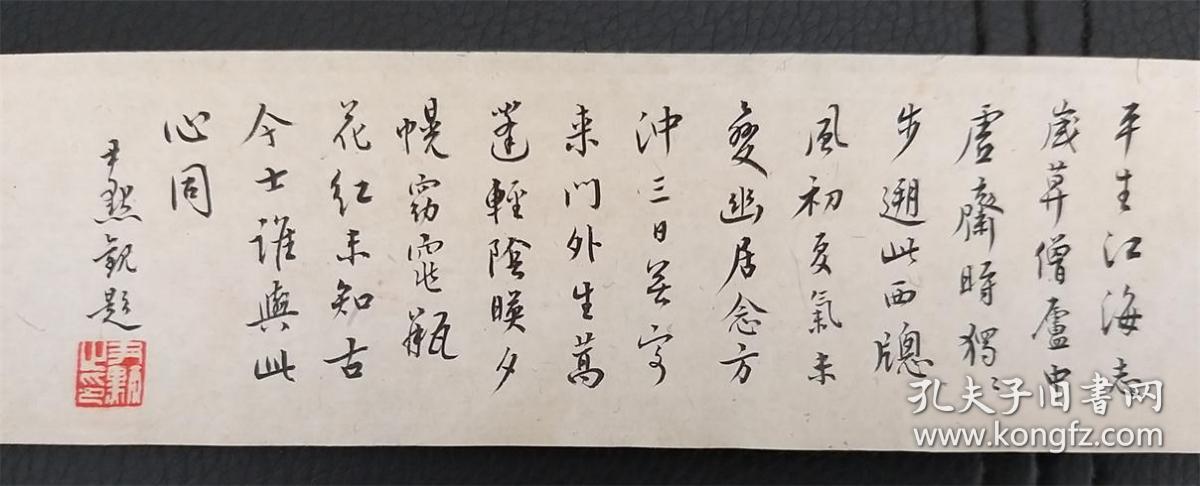 平生江海志
歲莫僧廬中
虛齋時獨〻
步遡此西牕
風初夏氣未
變幽居念方
沖三日無客
来門外生蒿
蓬輕陰暎夕
幌窈窕瓶
花紅未知古
今士誰與此
心同
尹默觀題
尹默之印
孔夫子旧书网
www.kongfz.com